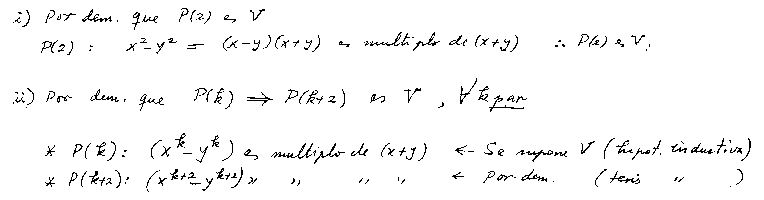 i) Por dem. que P(2) es V
P(2) : x²-y² = (x-y)(x+y) es multiplo de (x+y) ∴ P(2) es V.
ii) Por dem. que P(k) ⇒ P(k+2) es V , ∀ k par
* P(k): (x^k - y^k) es multiplo de (x+y) ← Se supone V (hipot. inductiva)
* P(k+2): (x^{k+2} - y^{k+2}) " " " " ← Por dem. (tesis " )